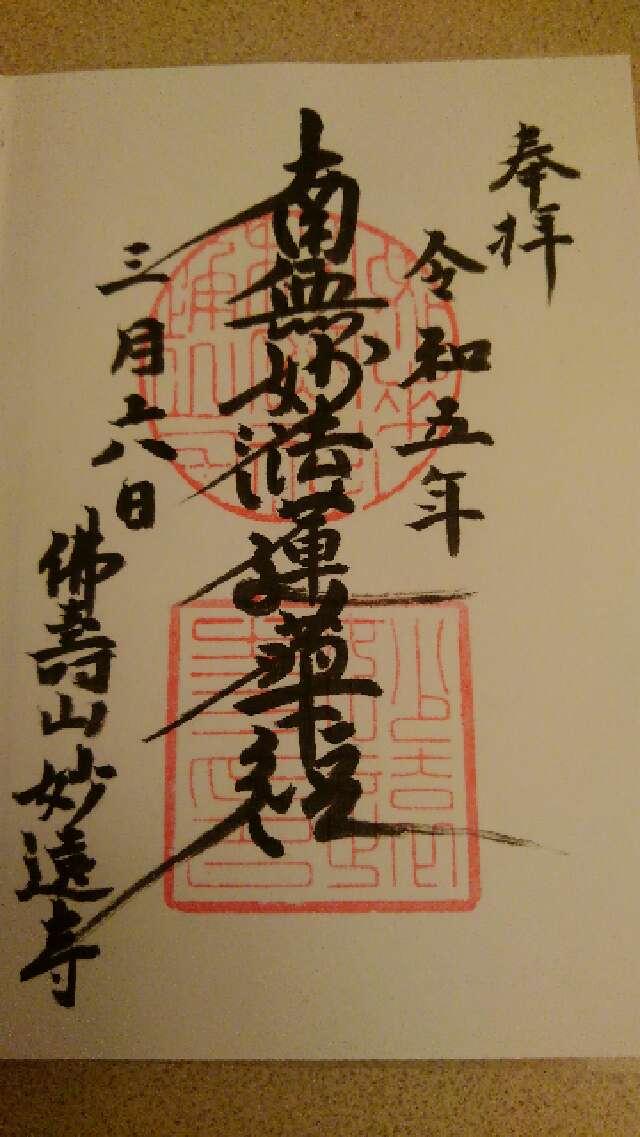 奉拝
令和五年
南無妙法蓮華経
三月六日
佛壽山妙遠寺